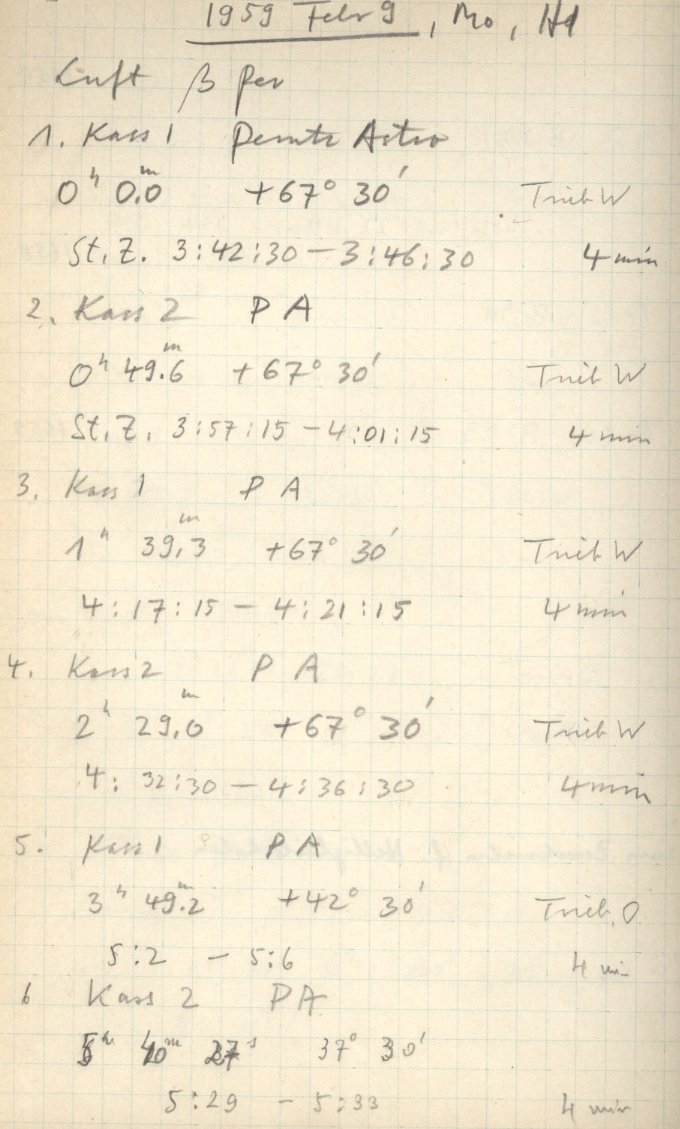 1959 Febr 9, Mo, Hf
Luft β Per
1. Kass 1 Perutz Astro
0ʰ 0,0ᵐ +67° 30' Trieb W
St.Z. 3:42:30 – 3:46:30 4 min
2. Kass 2 P A
0ʰ 49.6ᵐ +67° 30' Trieb W
St.Z. 3:57:15 – 4:01:15 4 min
3. Kass 1 P A
1ʰ 39,3ᵐ +67° 30' Trieb W
4:17:15 – 4:21:15 4 min
4. Kass 2 P A
2ʰ 29,0ᵐ +67° 30' Trieb W
4:32:30 – 4:36:30 4 min
5. Kass 1 P A
3ʰ 49.2ᵐ +42° 30' Trieb O
5:2 – 5:6 4 min
6 Kass 2 PA
5ʰ 40ᵐ 27ˢ 37° 30'
5:29 – 5:33 4 min